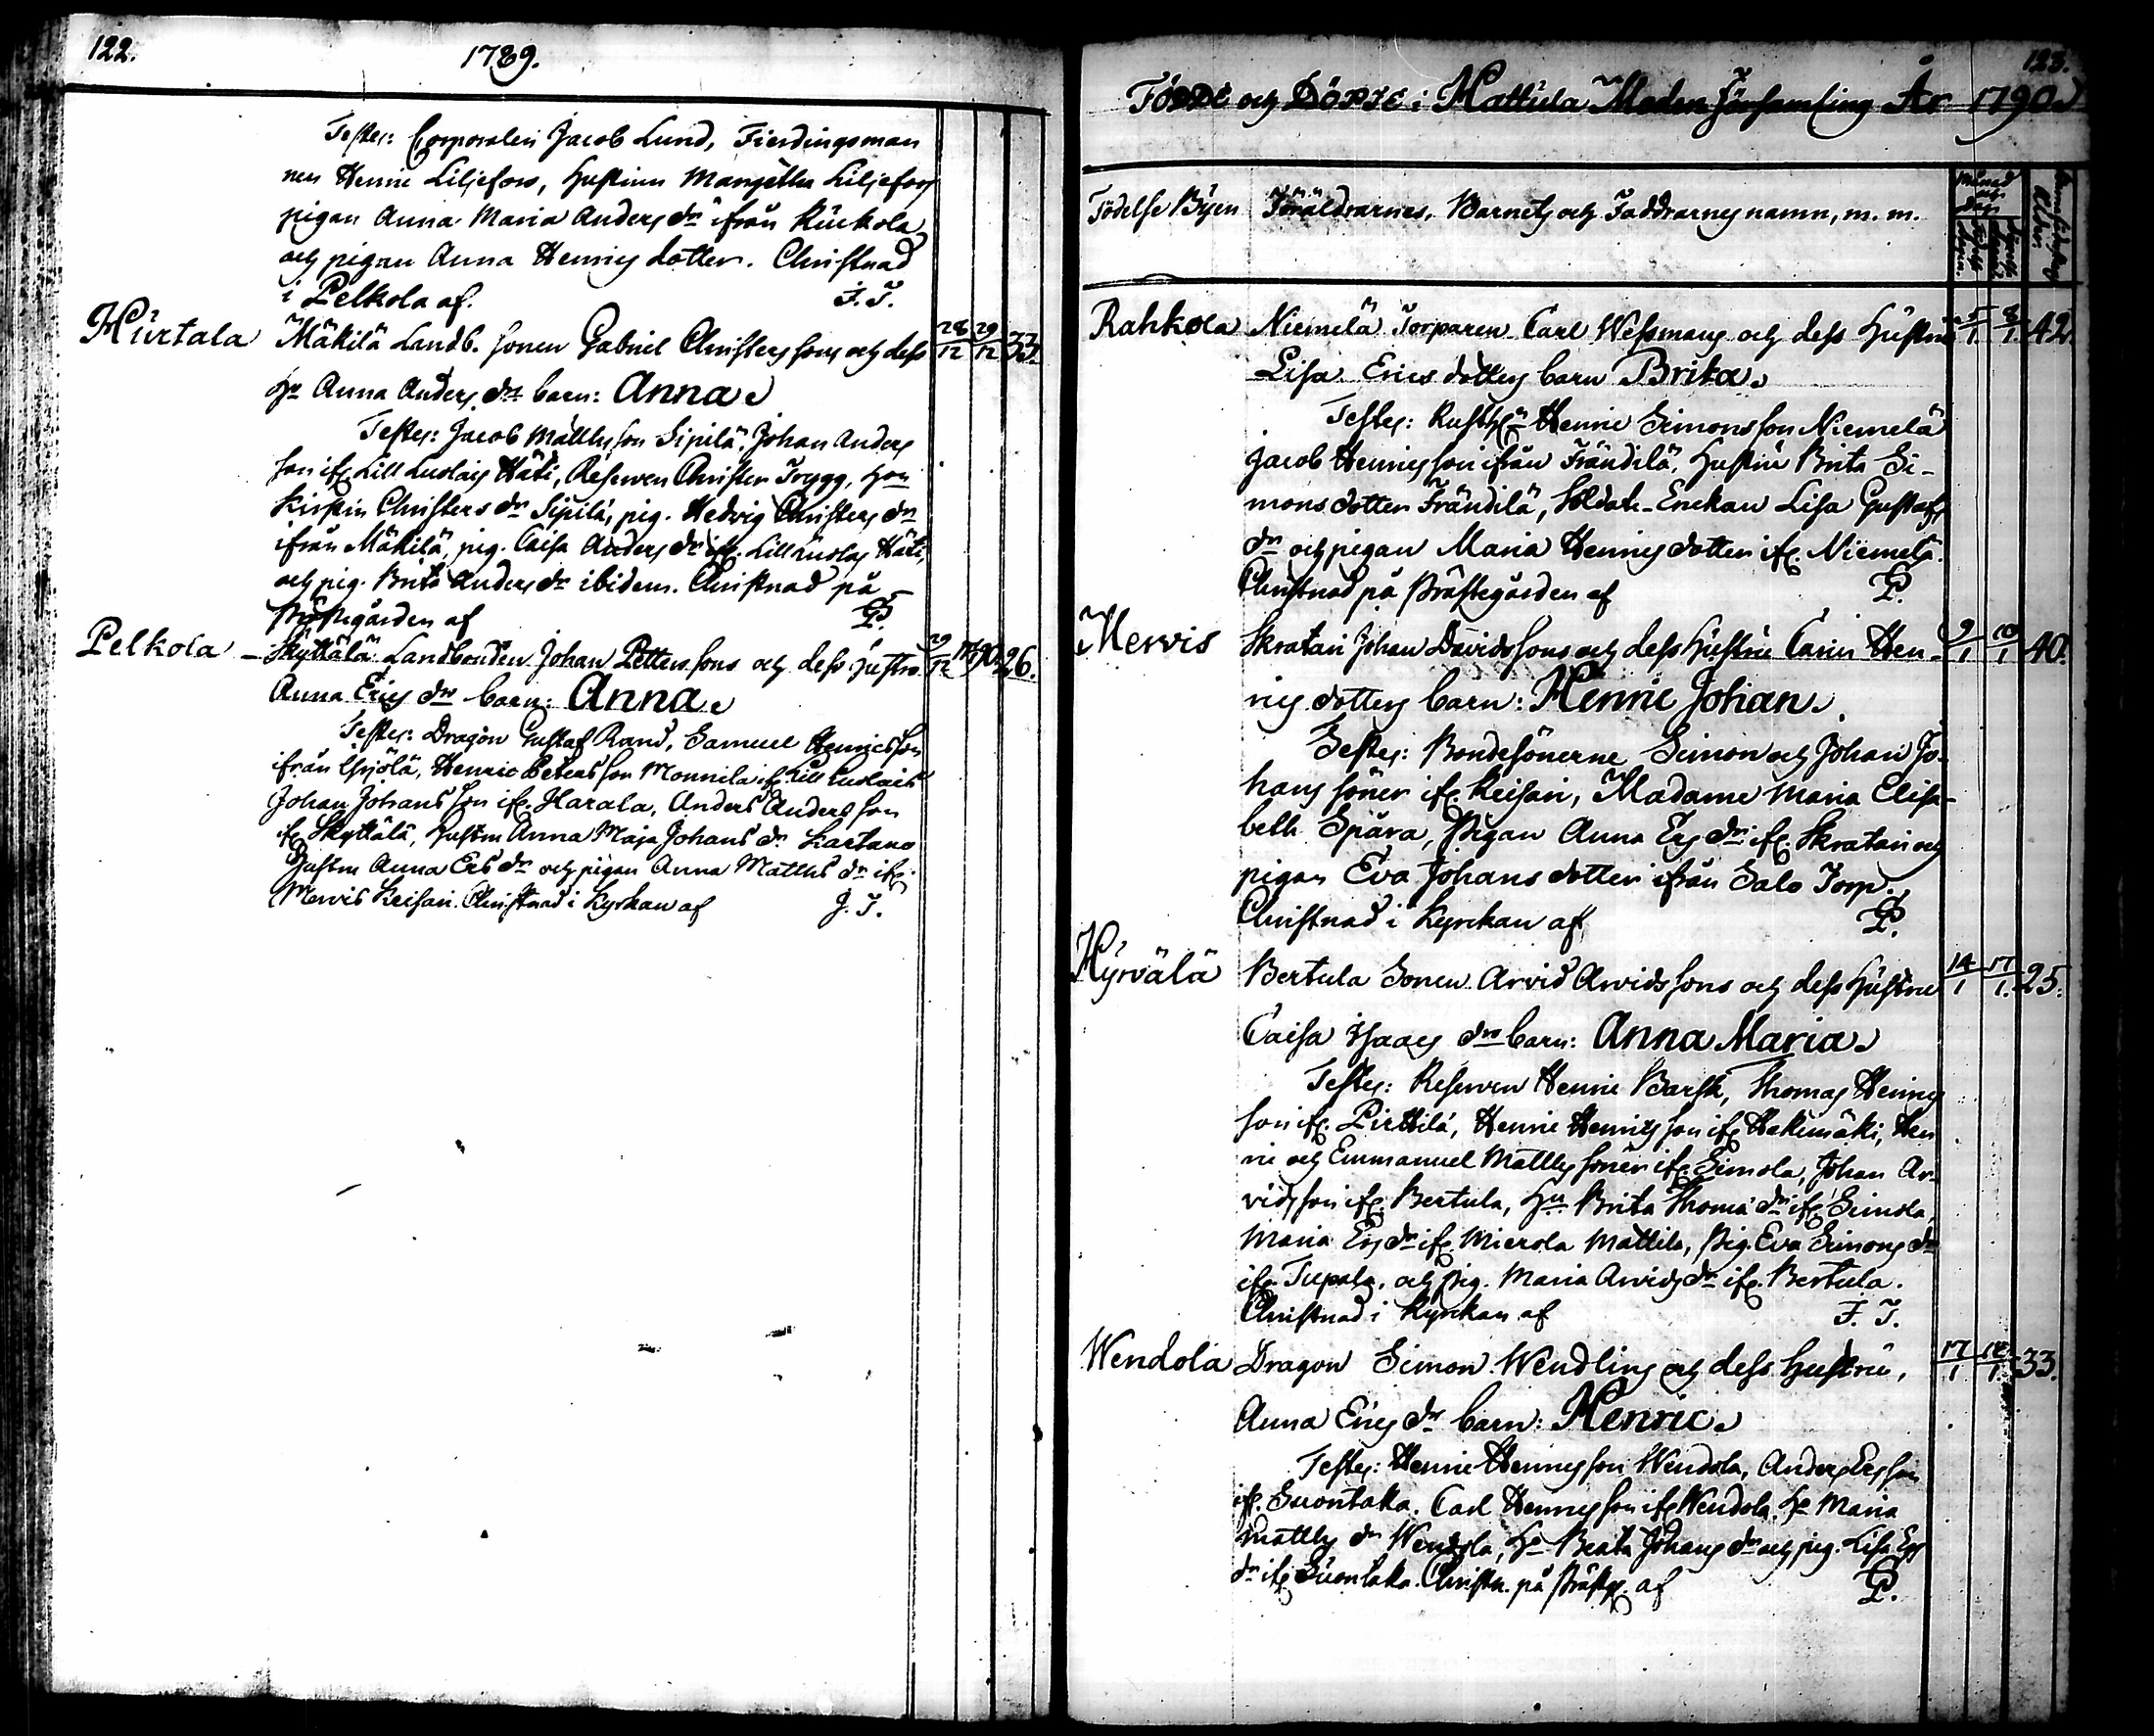 122. 1789.
Testes: Corporalen Jacob Lund, Fierdingsman
nen Henric Liljefors, Hustrun Margetha Liljefors
pigan Anna Maria Anders dr ifrån Ruckola
och pigan Anna Henrics dotter. Christnad
i Pelkola af. F. T.
Hurtala Mäkilä Landb. sonen Gabriel Christers sons och dess 28/12 29/12 33.
Hu Anna Anders drs barn: Anna.
Testes: Jacob Matths son Sipilä, Johan Anders
son ifr. Lill Luolais Häti, Reserven Christer Trygg, Hun
Kirstin Christers dr Sipilä, pig. Hedvig Christers dr
ifrån Mäkilä, pig. Caisa Anders dr ifr. Lill Luolais Häti,
och pig. Brita Anders dr ibidem. Christnad på
Prästegården af P.
Pelkola - Skyttälä Landbonden Johan Petters sons och dess hustru 29/12 26.
Anna Erics drs barn: Anna.
Testes: Dragon Gustaf Rand, Samuel Henricsson
ifrån, Henric Peters son Monnila ifr. Lill Luolais
Johan Johans son ifr. Harala, Anders Anders son
ifr. Skyttälä, Hustru Anna Maja Johans dr Kartano
Hustru Anna Ers dr och pigan Anna Matths dr ifr.
Mervis Keisari. Christnad i Kyrkan af J. T.
123.
Födde och Döpte i Hattula Moder Församling År 1790.
Födelse Byen Föräldrarnes, Barnets och Faddrarnes namn, m. m. Månad och Dag
Rahkola Niemelä Torparen Carl Wessmans och dess Hustru 5/1 8/1. 42.
Lisa Erics dotters barn Brita.
Testes: Rusth. Henric Simonsson Niemelä
Jacob Henrics son ifrån Frändilä, Hustru Brita Si-
mons dotter Frändilä, Soldate-Enckan Lisa Gustafs
dr och pigan Maria Henrics dotter ifr. Niemelä.
Christnad på Prästegården af P.
Mervis Skratari Johan Davids sons och dess Hustru Carin Hen- 9/1 10/1 40.
rics dotters barn: Henric Johan.
Testes: Bondesönerne Simon och Johan Jo-
hans söner ifr. Keisari, Madame Maria Elisa-
beth Spåra, Pigan Anna Ers dr ifr. Skratari och
pigan Eva Johans dotter ifrån Salo Torp.
Christnad i Kyrckan af P.
Hyrvälä Bertula Sonen Arvid Arvids sons och dess Hustru 14/1 17/1. 25.
Caisa Isaacs drs barn: Anna Maria.
Testes: Reserven Henric Barsk, Thomas Henrics
son ifr. Pirttilä, Henric Henrics son ifr. Hakimäki, Hen
ric och Emmanuel Matths söner ifr. Simola, Johan Ar-
vids son ifr. Bertula, Hu Brita Thoms dr ifr. Simola,
Maria Ers dr ifr. Mierola Mattila, Pig. Eva Simons dr
ifr. Tupala, och pig. Maria Arvids dr ifr. Bertula.
Christnad i Kyrckan af F. T.
Wendola Dragon Simon Wendling och dess hustru, 17/1 18/1. 33.
Anna Erics drs barn: Henric.
Testes: Henric Henrics son Wendola, Anders Ers son
ifr. Suontaka. Carl Henrics son ifr. Wendola. Hu Maria
Matths dr Wendola, Hu Beata Johans dr och pig. Lisa Ers
dr ifr. Suontaka. Christn. på Prästeg. af P.